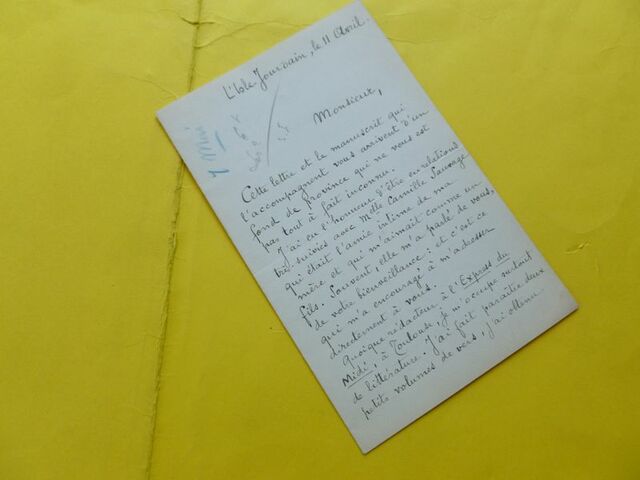 L'Isle Jourdain, le 11 Avril.
1 Mai
Monsieur,
Cette lettre et le manuscrit qui
l'accompagnent vous arrivent d'un
fond de province qui ne vous est
pas tout à fait inconnu.
J'ai eu l'honneur d'être en relations
très suivies avec Melle Camille Sauvage
qui était l'amie intime de ma
mère et qui m'aimait comme un
fils. Souvent, elle m'a parlé de vous,
de votre bienveillance ; et c'est ce
qui m'a encouragé à m'adresser
directement à vous.
Quoique rédacteur à l'Express du
Midi, à Toulouse, je m'occupe surtout
de littérature. J'ai fait paraître deux
petits volumes de vers, j'ai obtenu